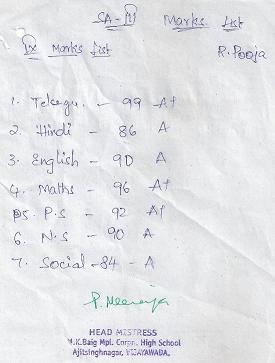 SA-III Marks list
IX Marks list R. Pooja
1. Telugu. - 99 A+
2. Hindi - 86 A
3. English - 90 A
4. Maths - 96 A+
5. P.S - 92 A+
6. N.S - 90 A
7. Social - 84 - A
P. Neeraja
HEAD MISTRESS
M.K.Baig Mpl. Corpn. High School
Ajitsinghnagar, VIJAYAWADA.